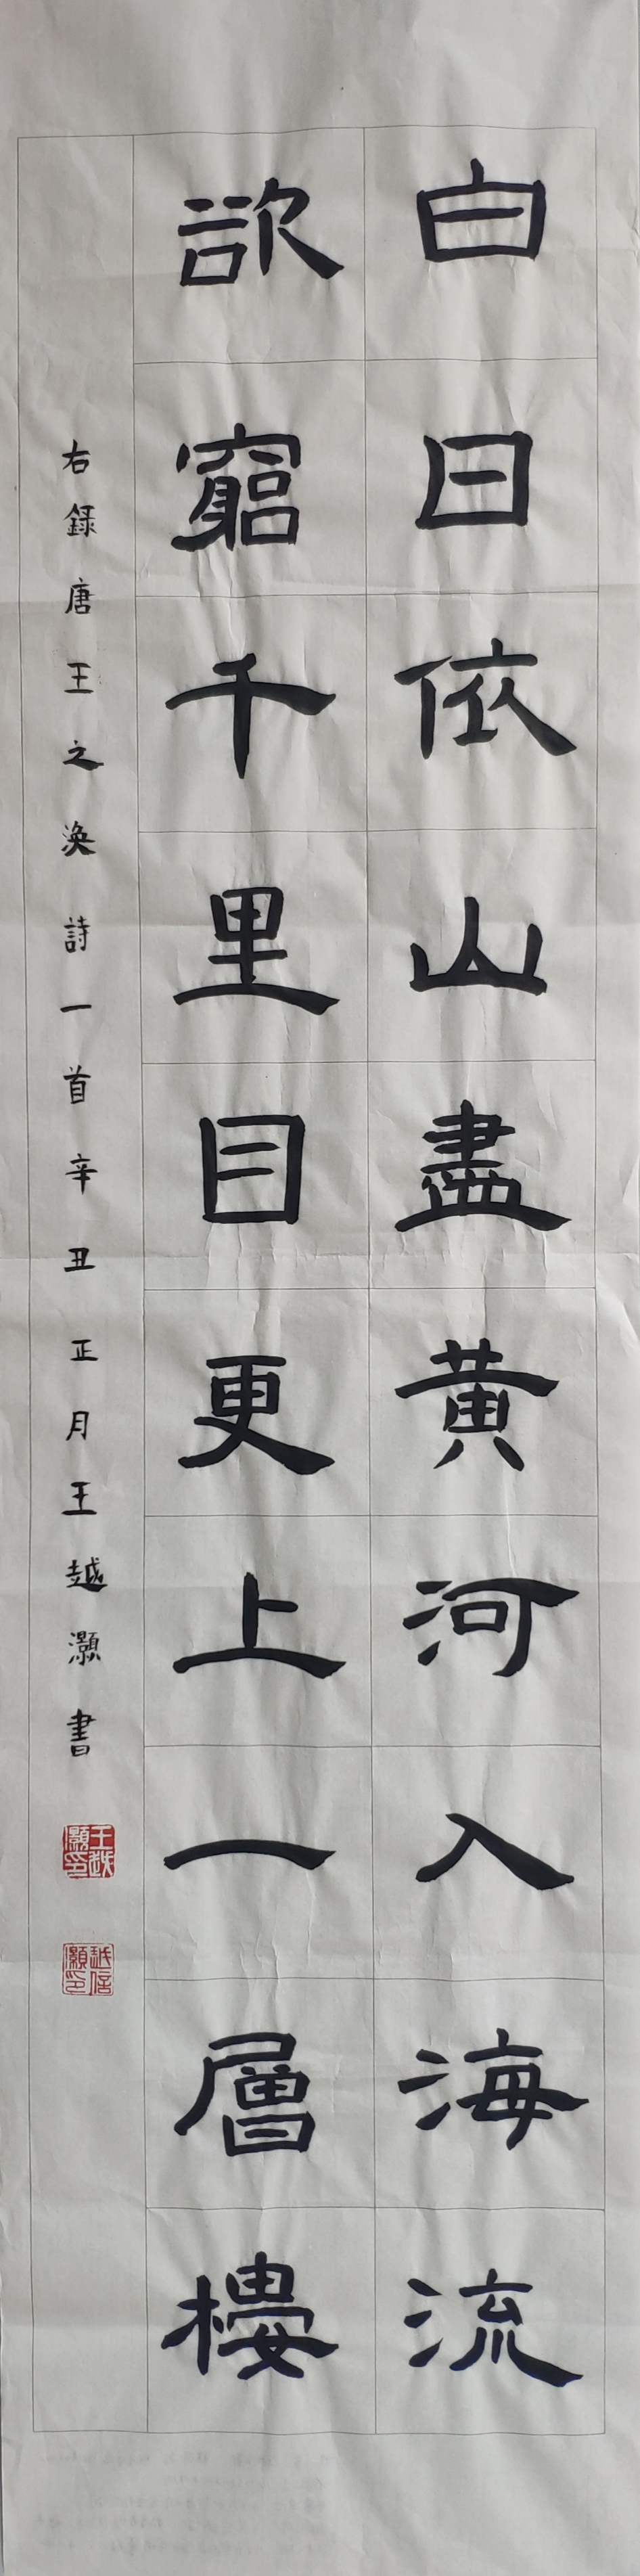 白日依山盡黄河入海流
欲窮千里目更上一層樓
右録唐王之涣詩一首辛丑正月王越灏書
王越灝印